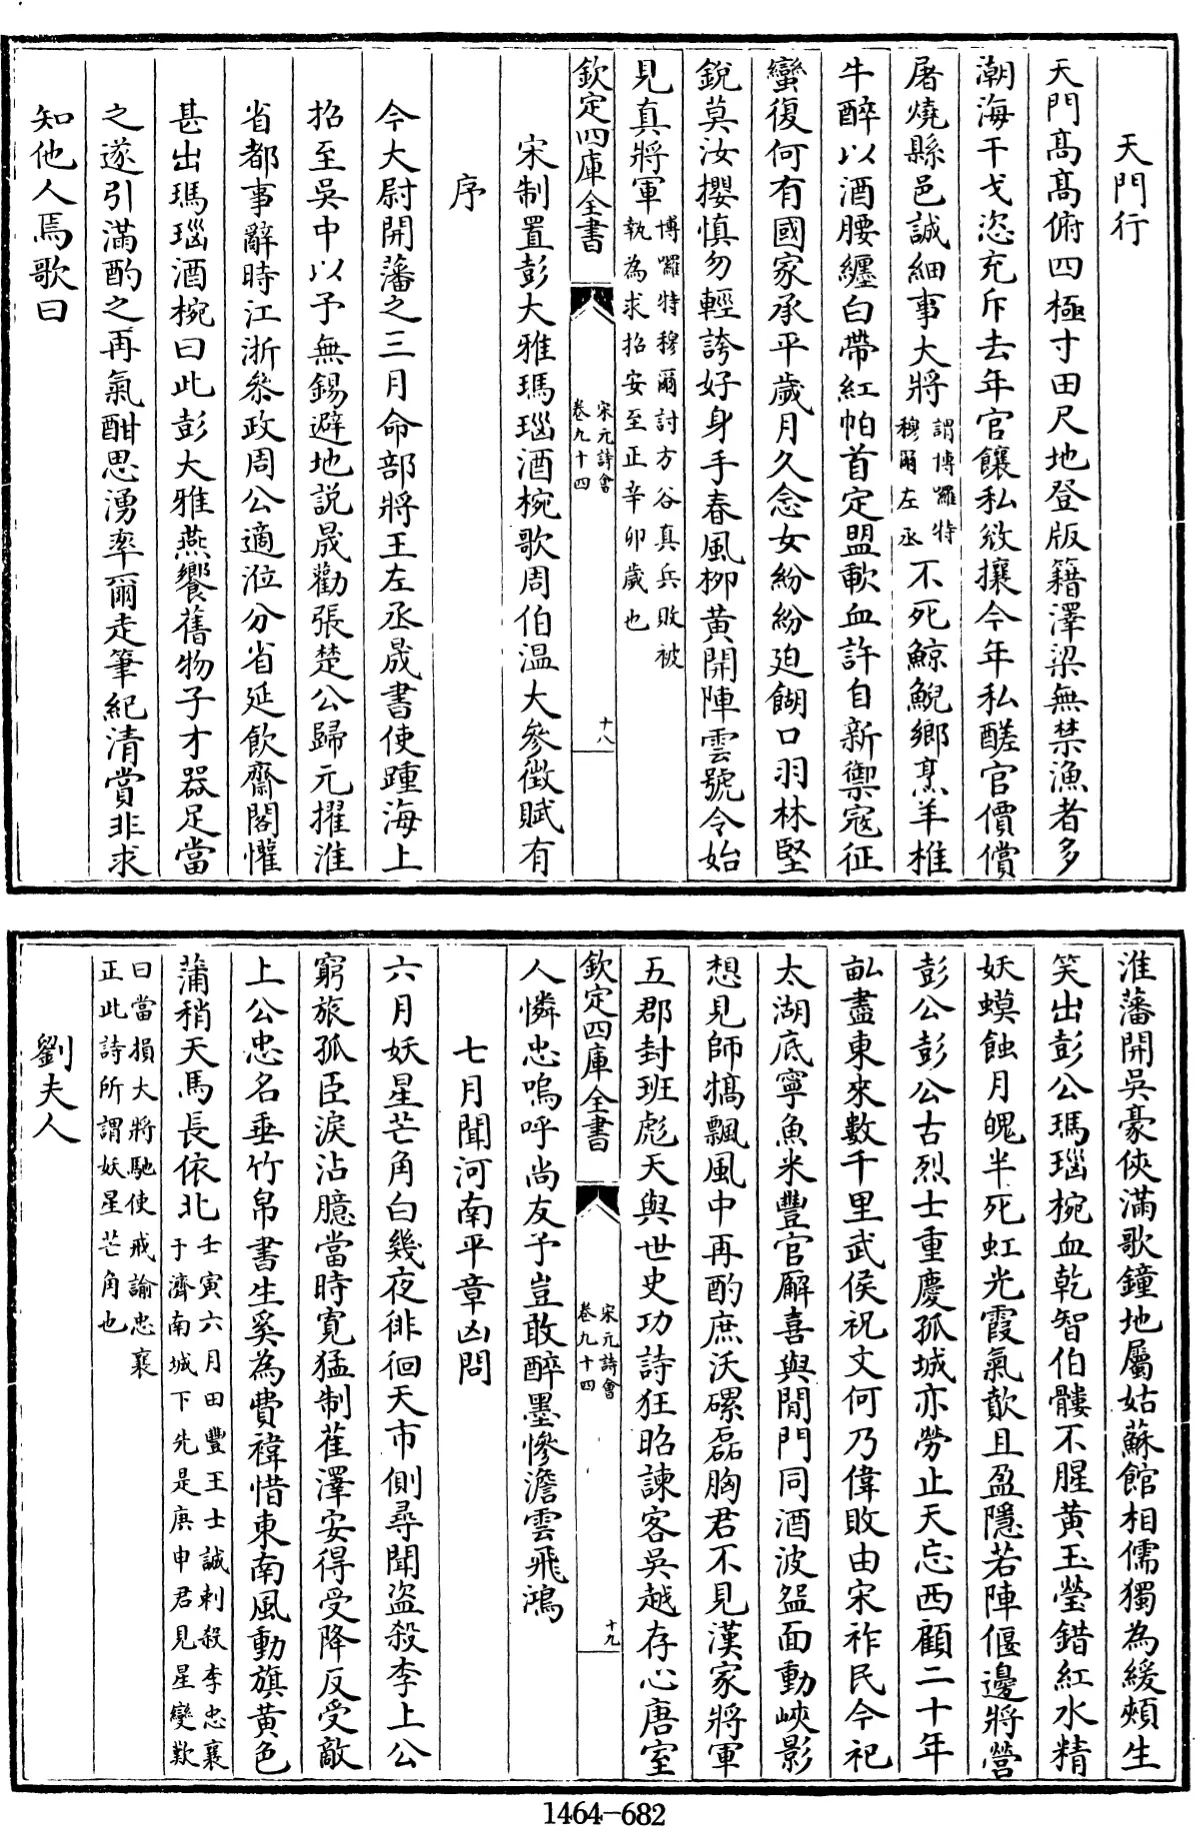 天門行
天門高高俯四極寸田尺地登版籍澤梁無禁漁者多
潮海干戈恣充斥去年官饟私斂攘今年私醝官價償
屠燒縣邑誠細事大將謂博囉特穆爾左丞不死鯨鯢鄉烹羊椎
牛醉以酒腰纏白帶紅帕首定盟歃血許自新禦寇征
蠻復何有國家承平歲月久念女紛紛迫餬口羽林堅
銳莫汝攖慎勿輕誇好身手春風栁黄開陣雲號令始
見真將軍博囉特穆爾討方谷真兵敗被執為求招安至正辛卯歲也
欽定四庫全書
宋元詩會
卷九十四
十八
宋制置彭大雅瑪瑙酒椀歌周伯温大參徴賦有
序
今大尉開藩之三月命部將王左丞晟書使踵海上
招至吳中以予無錫避地説晟勸張楚公歸元擢淮
省都事辭時江浙叅政周公適涖分省延飲齋閣懽
甚出瑪瑙酒椀曰此彭大雅燕饗舊物子才器足當
之遂引滿酌之再氣酣思湧率爾走筆紀清賞非求
知他人焉歌曰
淮藩開吳豪俠滿歌鐘地屬姑蘇館相儒獨為緩頰生
笑出彭公瑪瑙椀血乾智伯髏不腥黄玉瑩錯紅水精
妖蟆蝕月魄半死虹光霞氣歕且盈隱若陣偃邊將營
彭公彭公古烈士重慶孤城亦勞止天忘西顧二十年
畆盡東來數千里武侯祝文何乃偉敗由宋祚民今祀
太湖底寧魚米豐官廨喜與閒門同酒波盌面動峽影
想見師犒飄風中再酌庶沃磥磊胸君不見漢家將軍
五郡封班彪天與世史功詩狂昭諫客吳越存心唐室
欽定四庫全書
宋元詩會
卷九十四
十九
人憐忠嗚呼尚友予豈敢醉墨慘澹雲飛鴻
七月聞河南平章凶問
六月妖星芒角白幾夜徘徊天市側尋聞盗殺李上公
窮旅孤臣淚沾臆當時寛猛制萑澤安得受降反受敵
上公忠名垂竹帛書生奚為費褘惜東南風動旗黄色
蒲稍天馬長依北壬寅六月田豐王士誠刺殺李忠襄于濟南城下先是庚申君見星變歎
曰當損大將馳使戒諭忠襄正此詩所謂妖星芒角也
劉夫人
1464-682